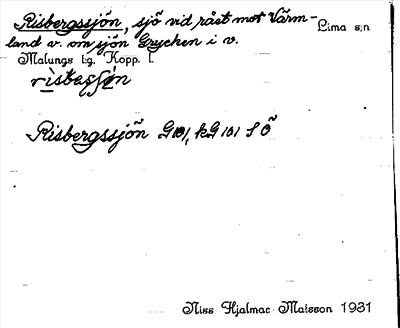 Risbergssjön, sjö vid råst mot Värm-
Lima s:n
land v. om sjön Grycken i v.
Malungs t:g. Kopp. l.
Risbergssjön G101, kG 101 S Ö
Niss Hjalmar Matsson 1931